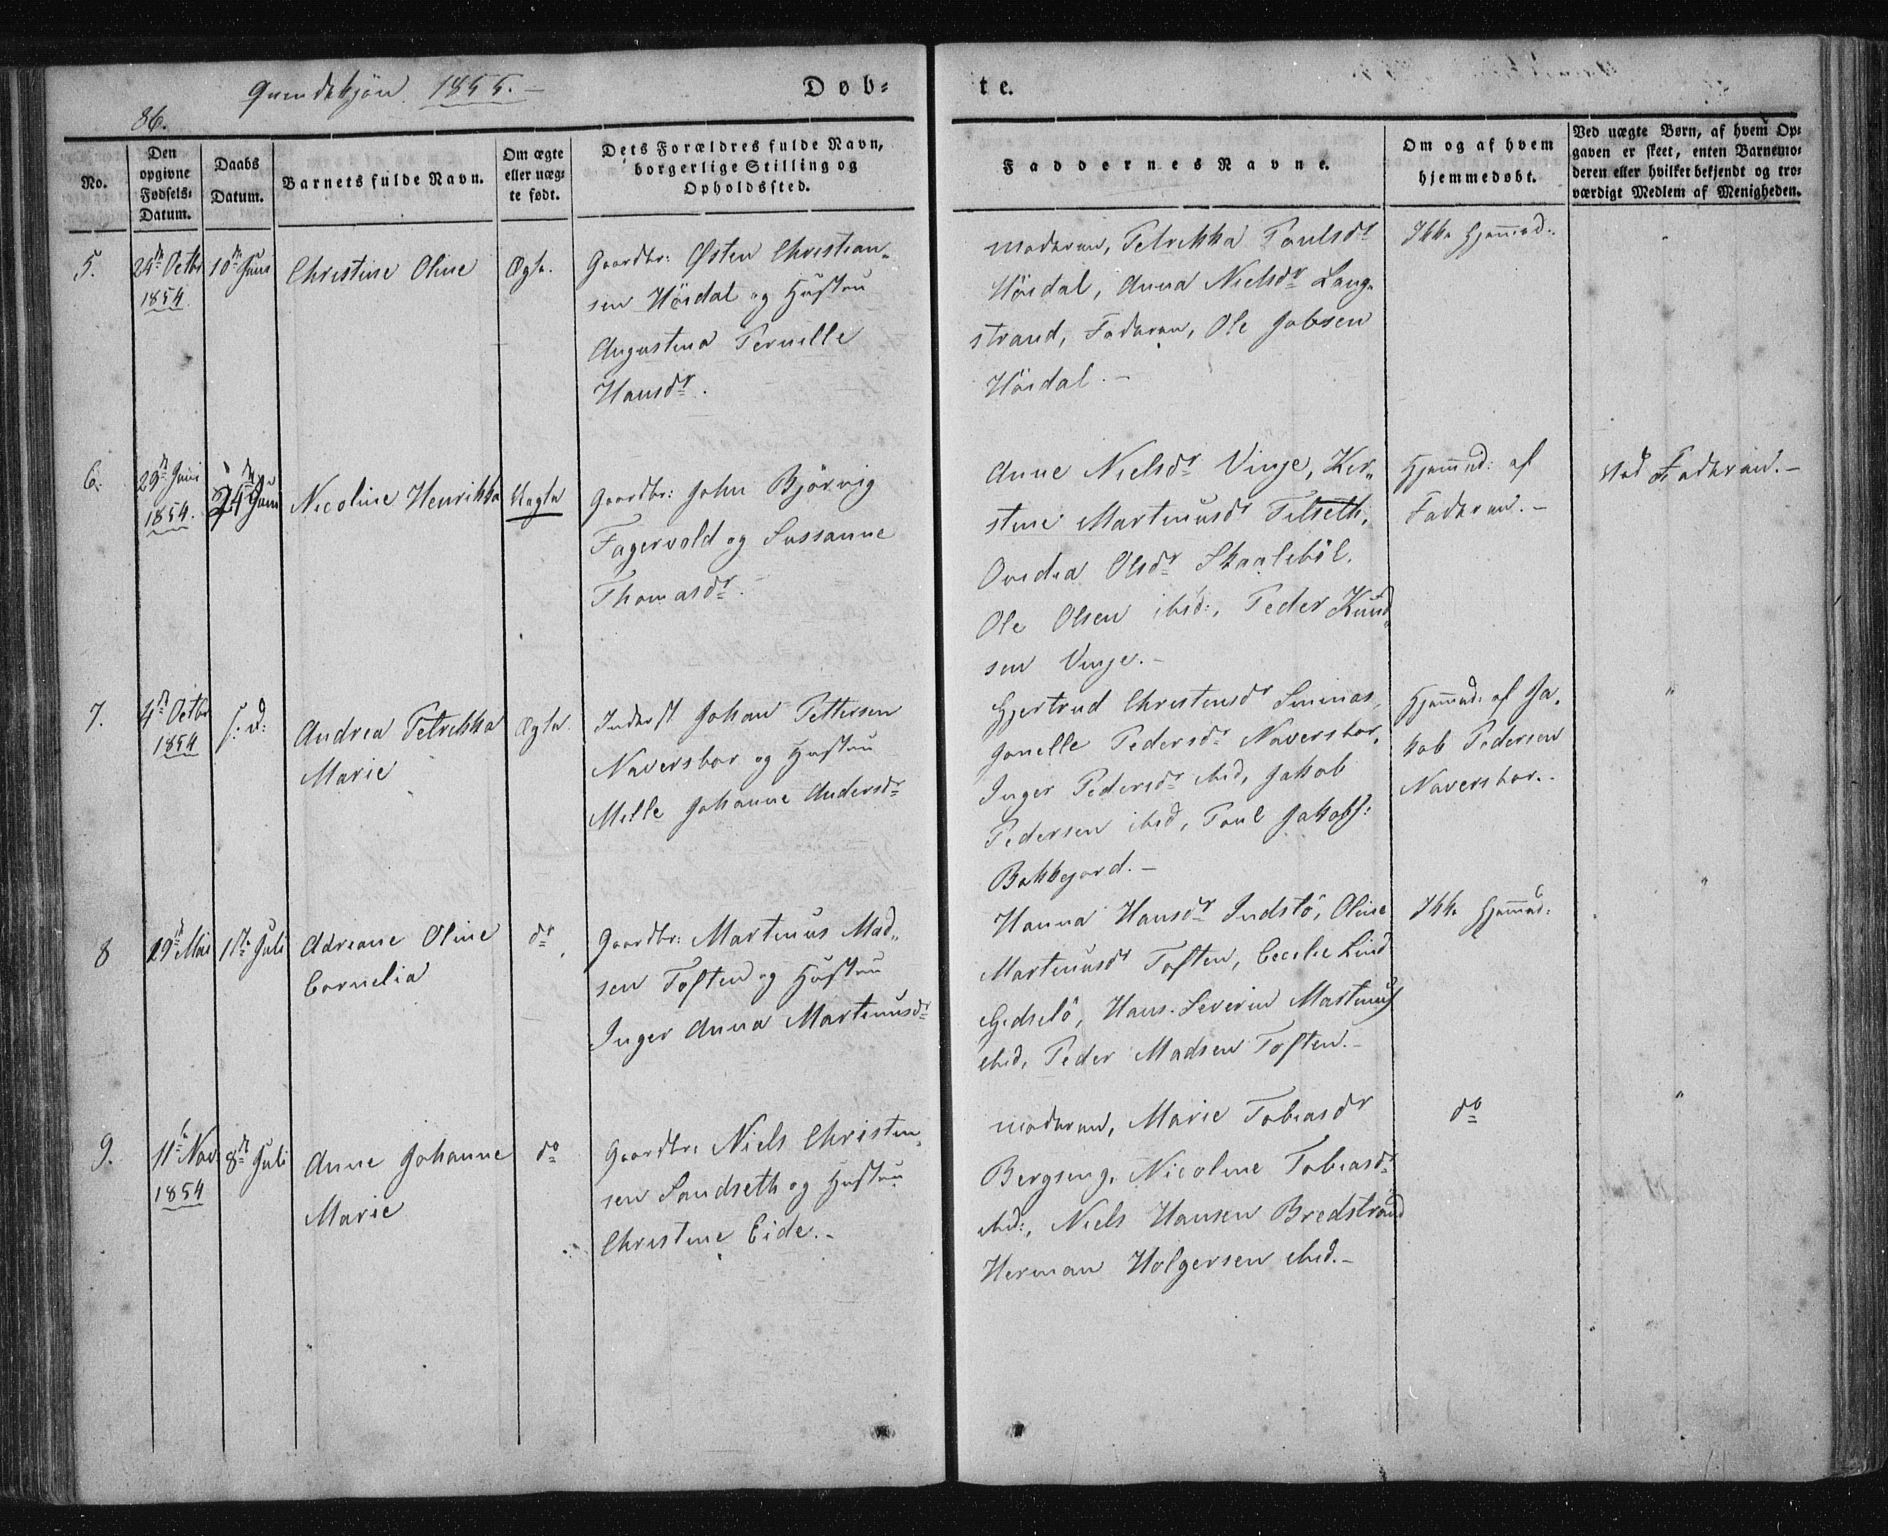 Qvindekjøn 1855.-
Døb-
te.
86.
No.
Den opgivne Fødsels-Datum.
Daabs Datum.
Barnets fulde Navn.
Om ægte eller uæg-te født.
Dets Forældres fulde Navn, borgerlige Stilling og Opholdssted.
Faddernes Navne.
Om og af hvem hjemmedøbt.
Ved uægte Børn, af hvem Op-gaven er skeet, enten Barnemo-deren eller hvilket bekjendt og tro-værdigt Medlem af Menigheden.
5.
24de Octbr
1854
10de Juni
Christine Oline
Ægte.
Gaardbr: Østen Christian-
sen Höidal og Hustru
Augustina Pernille
Hansdr.
moderen, Petrikka Poulsdr
Höidal, Anna Nielsdr Lang-
strand, Faderen, Ole Jobsen
Höidal.-
Ikke Hjemmed:
6.
29de Juni
1854.
24de Juni
Nicoline Henrikka
Uægte
Gaardbr: John Björvig
Fagervold og Sussanne
Thomasdr.
Anne Nielsdr Vinje, Ker-
stine Martinusdr Tilseth,
Ovidia Olsdr Skaaleböl.
Ole Olsen ibid:, Peder Knud-
sen Vinje.-
Hjemmed: af
Faderen.-
Ved Faderen.-
7.
4de Octbr
1854
s: d:
Andrea Petrikka
Marie
Ægte.
Inderst Johan Pettersen
Naverstor og Hustru
Mille Johanne Andersdr
Gjertrud Christensdr Simnas,
Jonelle Pedersdr Naverstor,
Inger Pedersdr ibid, Jakob
Pedersen ibid, Poul Jakobs:
Bakkejord.-
Hjemmed: af Ja-
kob Pedersen
Naverstor.-
"
8
29de Mai
1ste Juli
Adriane Oline
Cornelia
do
Gaardbr: Martinus Mad-
sen Toften og Hustru
Inger Anna Martinusdr
Hanna Hansdr Indstö, Oline
Martinusdr Toften, Cecilie Lind
Gidsclö, Hans. Severin Martinus
ibid, Peder Madsen Toften.-
Ikke Hjemmed:
"
9.
11te Nov
1854
8de Juli
Anne Johanne
Marie
do
Gaardbr: Niels Christen-
sen Sandseth og Hustru
Christine Eide.-
moderen, Marie Tobiasdr
Bergseng, Nicoline Tobiasdr
ibid:, Niels Hansen Bredstrand
Herman Holgersen ibid.-
do
"